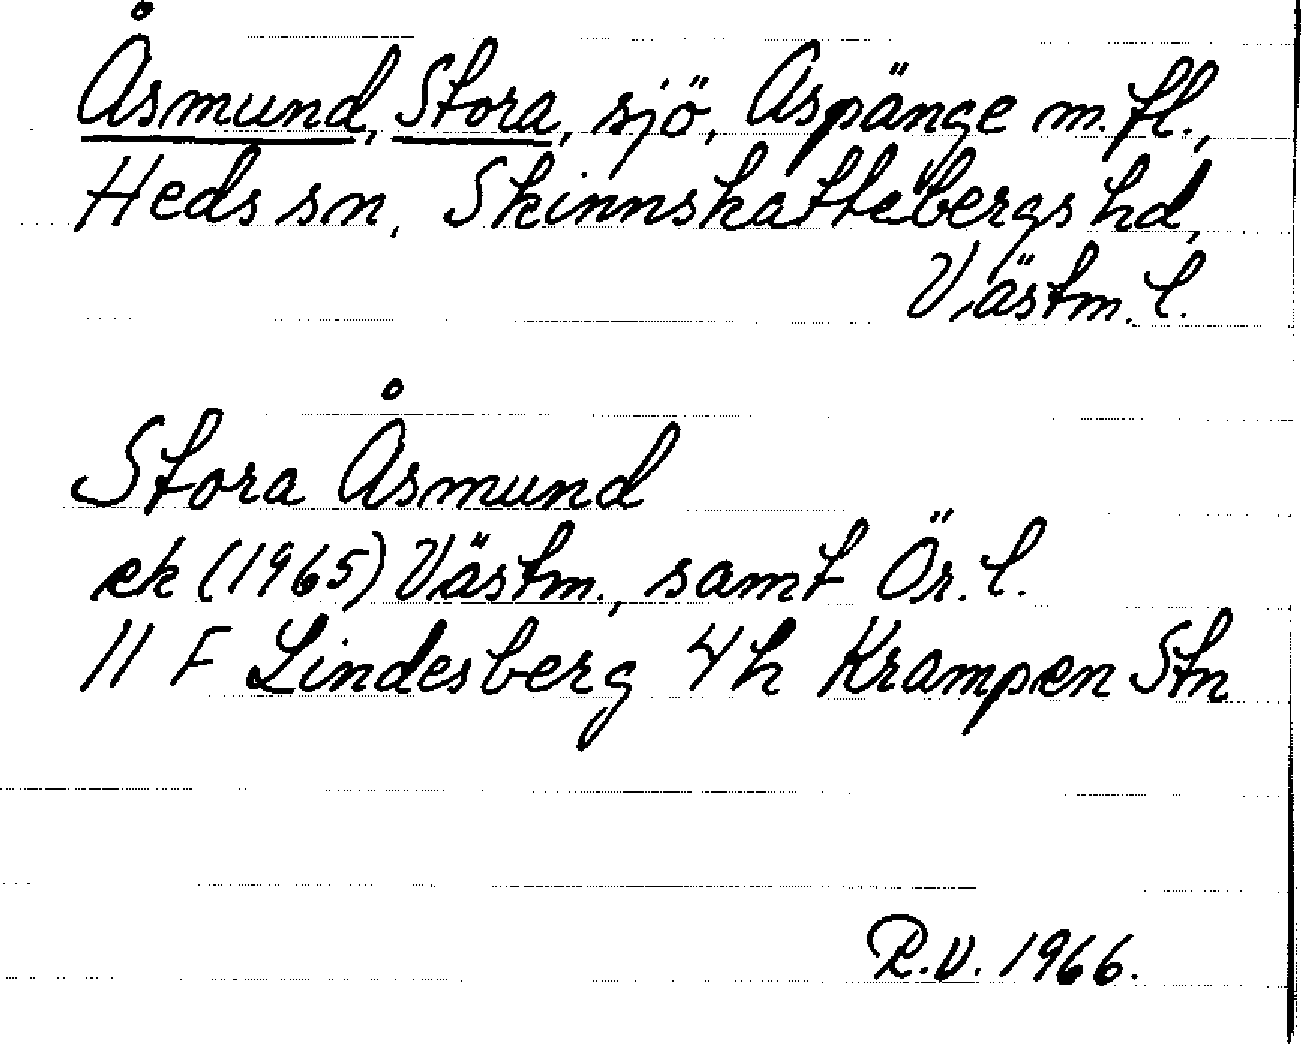 Åsmund, Stora, sjö, Aspänge m.fl.,
Heds sn, Skinnskattebergs hd,
Västm. l.
Stora Åsmund
ek (1965) Västm., samt Ör. l.
11 F Lindesberg 4h Krampen Stn
R.V. 1966.